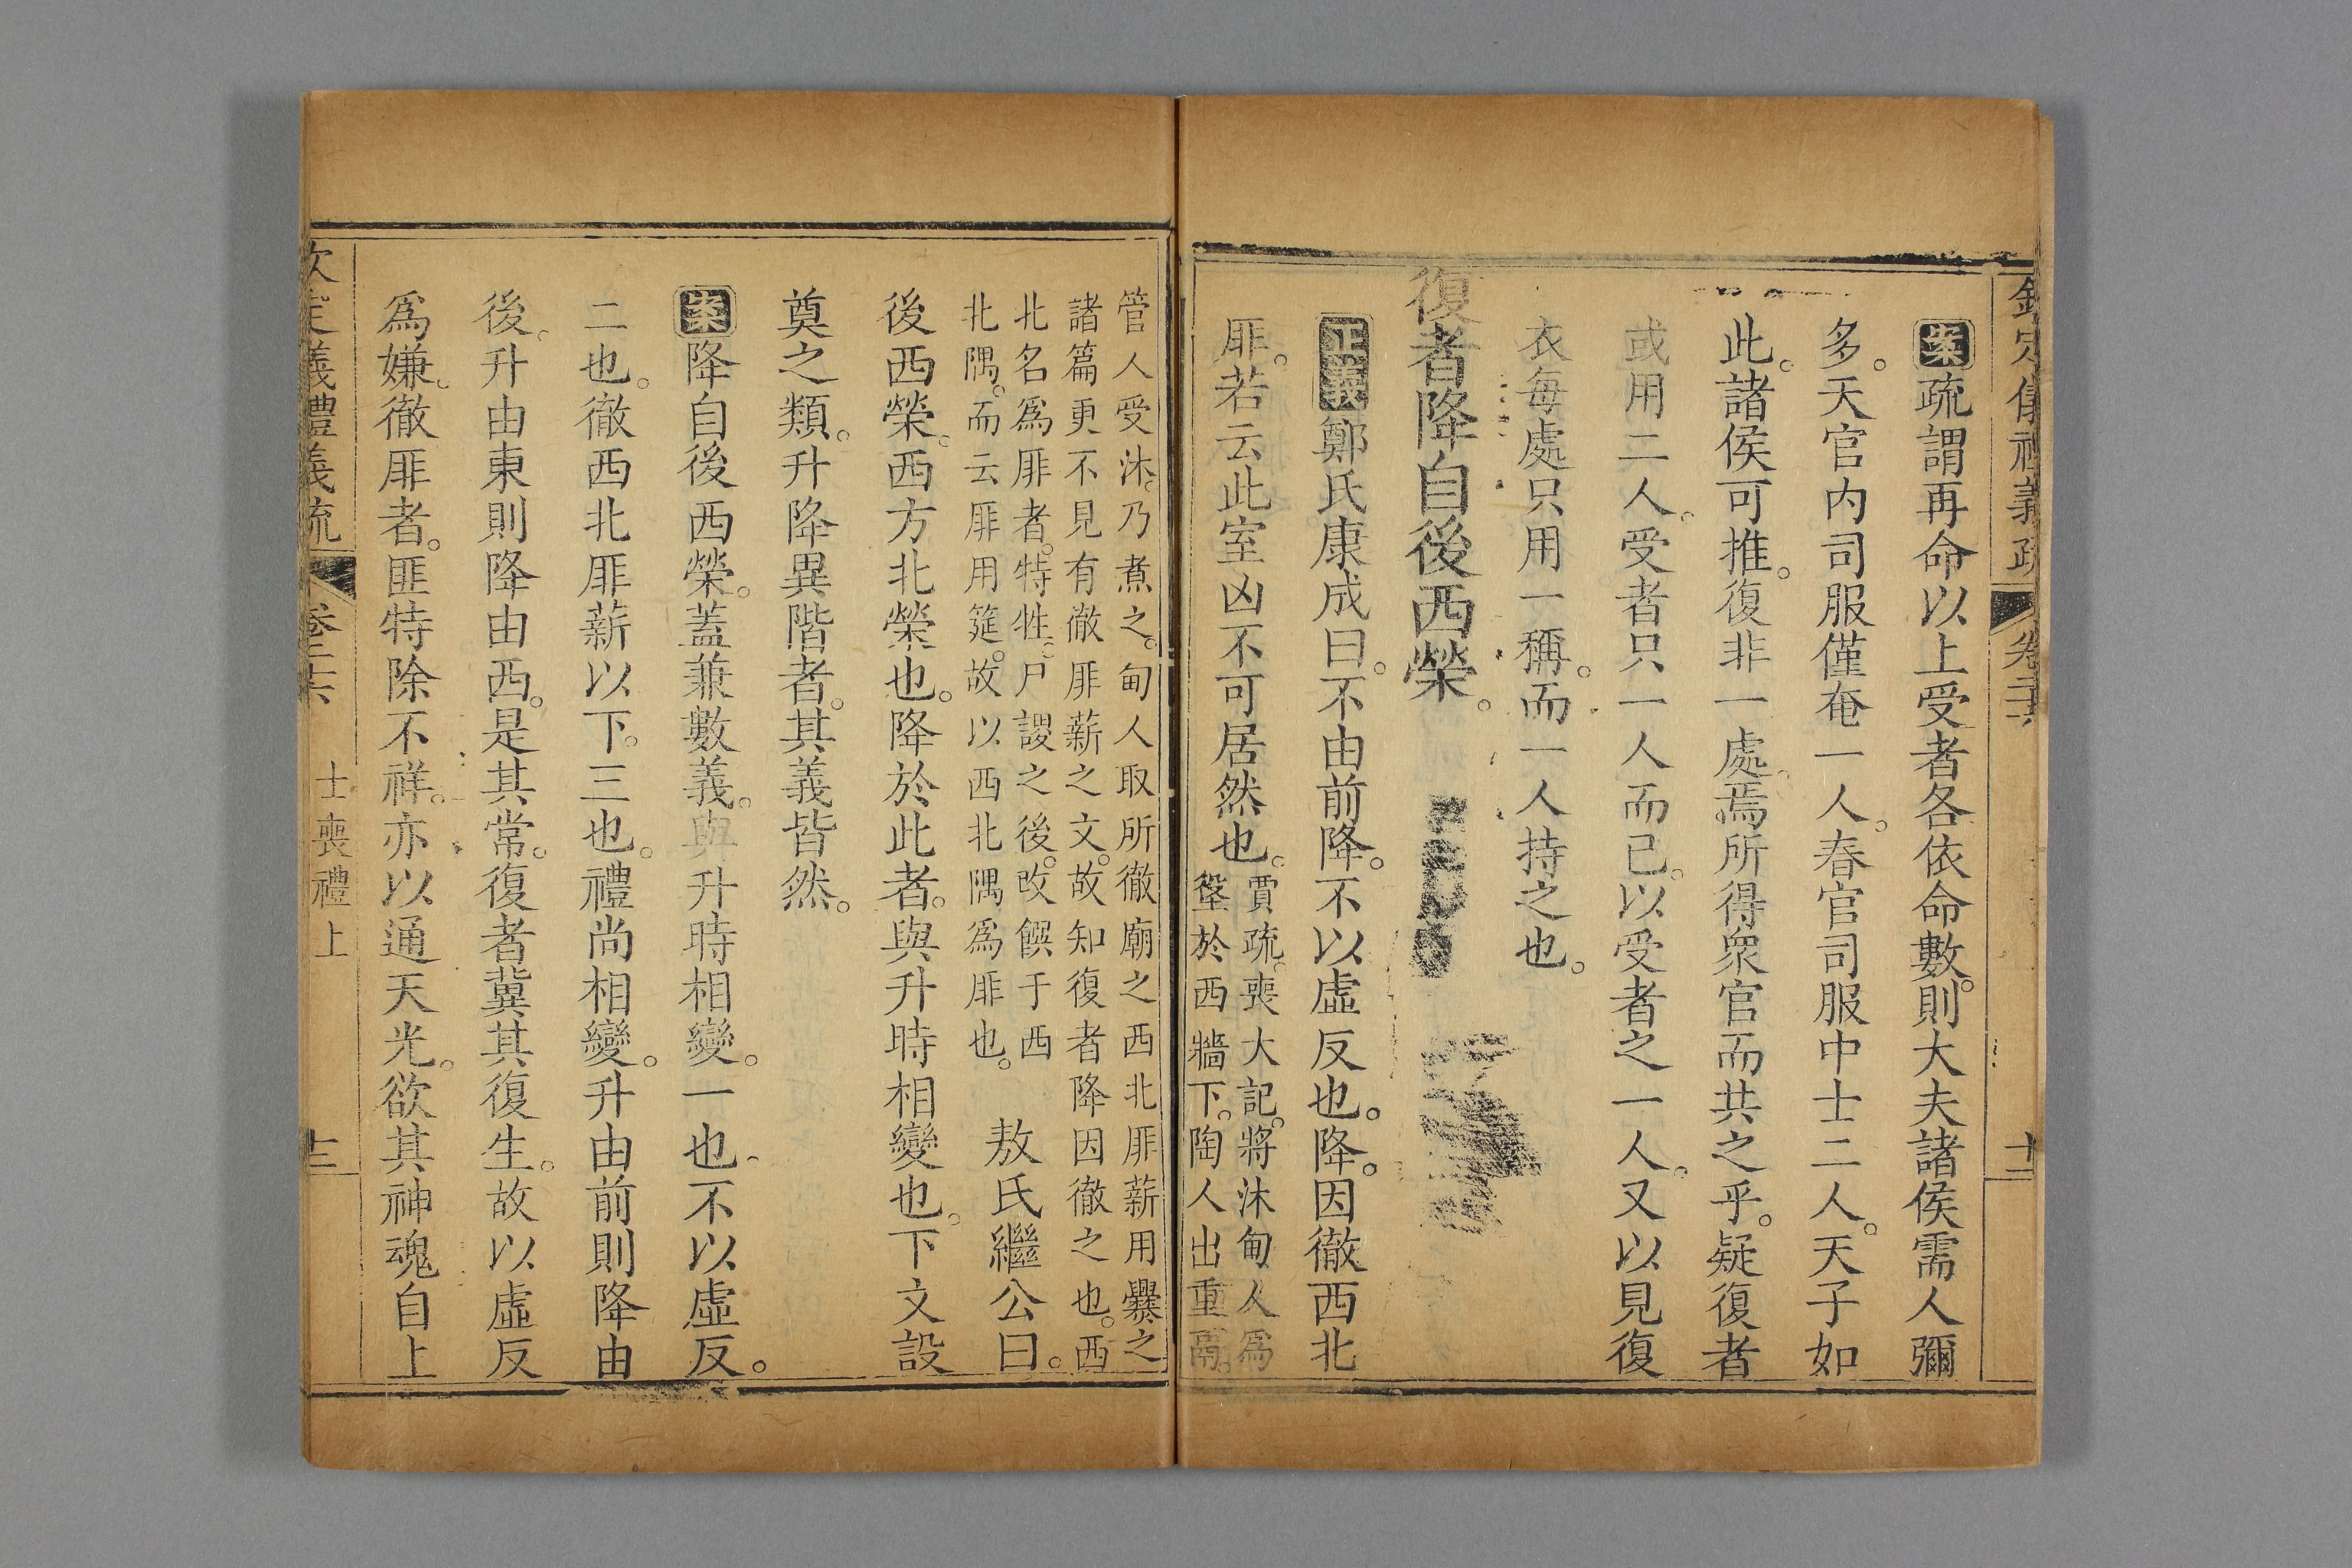 欽定儀禮義疏 卷二十六 十二
案疏謂再命以上受者各依命數。則大夫諸侯需人彌
多。天官内司服僅奄一人。春官司服中士二人。天子如
此。諸侯可推。復非一處。焉所得衆官而共之乎。疑復者
或用二人。受者只一人而已。以受者之一人。又以見復
衣每處只用一稱。而一人持之也。
復者降自後西榮。
正義鄭氏康成曰。不由前降。不以虛反也。降。因徹西北
厞。若云此室凶不可居然也。
賈疏。喪大記。將沐甸人爲
垼於西牆下。陶人出重鬲。
管人受沐。乃煮之。甸人取所徹廟之西北厞薪用爨之
諸篇更不見有徹厞薪之文。故知復者降因徹之也。西
北名爲厞者。特牲。尸謖之後。改饌于西
北隅。而云厞用筵。故以西北隅爲厞也。
敖氏繼公曰。
後西榮。西方北榮也。降於此者。與升時相變也。下文設
奠之類。升降異階者。其義皆然。
案降自後西榮。蓋兼數義。與升時相變。一也。不以虛反。
二也。徹西北厞薪以下。三也。禮尚相變。升由前則降由
後。升由東則降由西。是其常。復者冀其復生。故以虛反
爲嫌。徹厞者。匪特除不祥。亦以通天光。欲其神魂自上
欽定義禮義疏 卷二十六 士喪禮上 十三